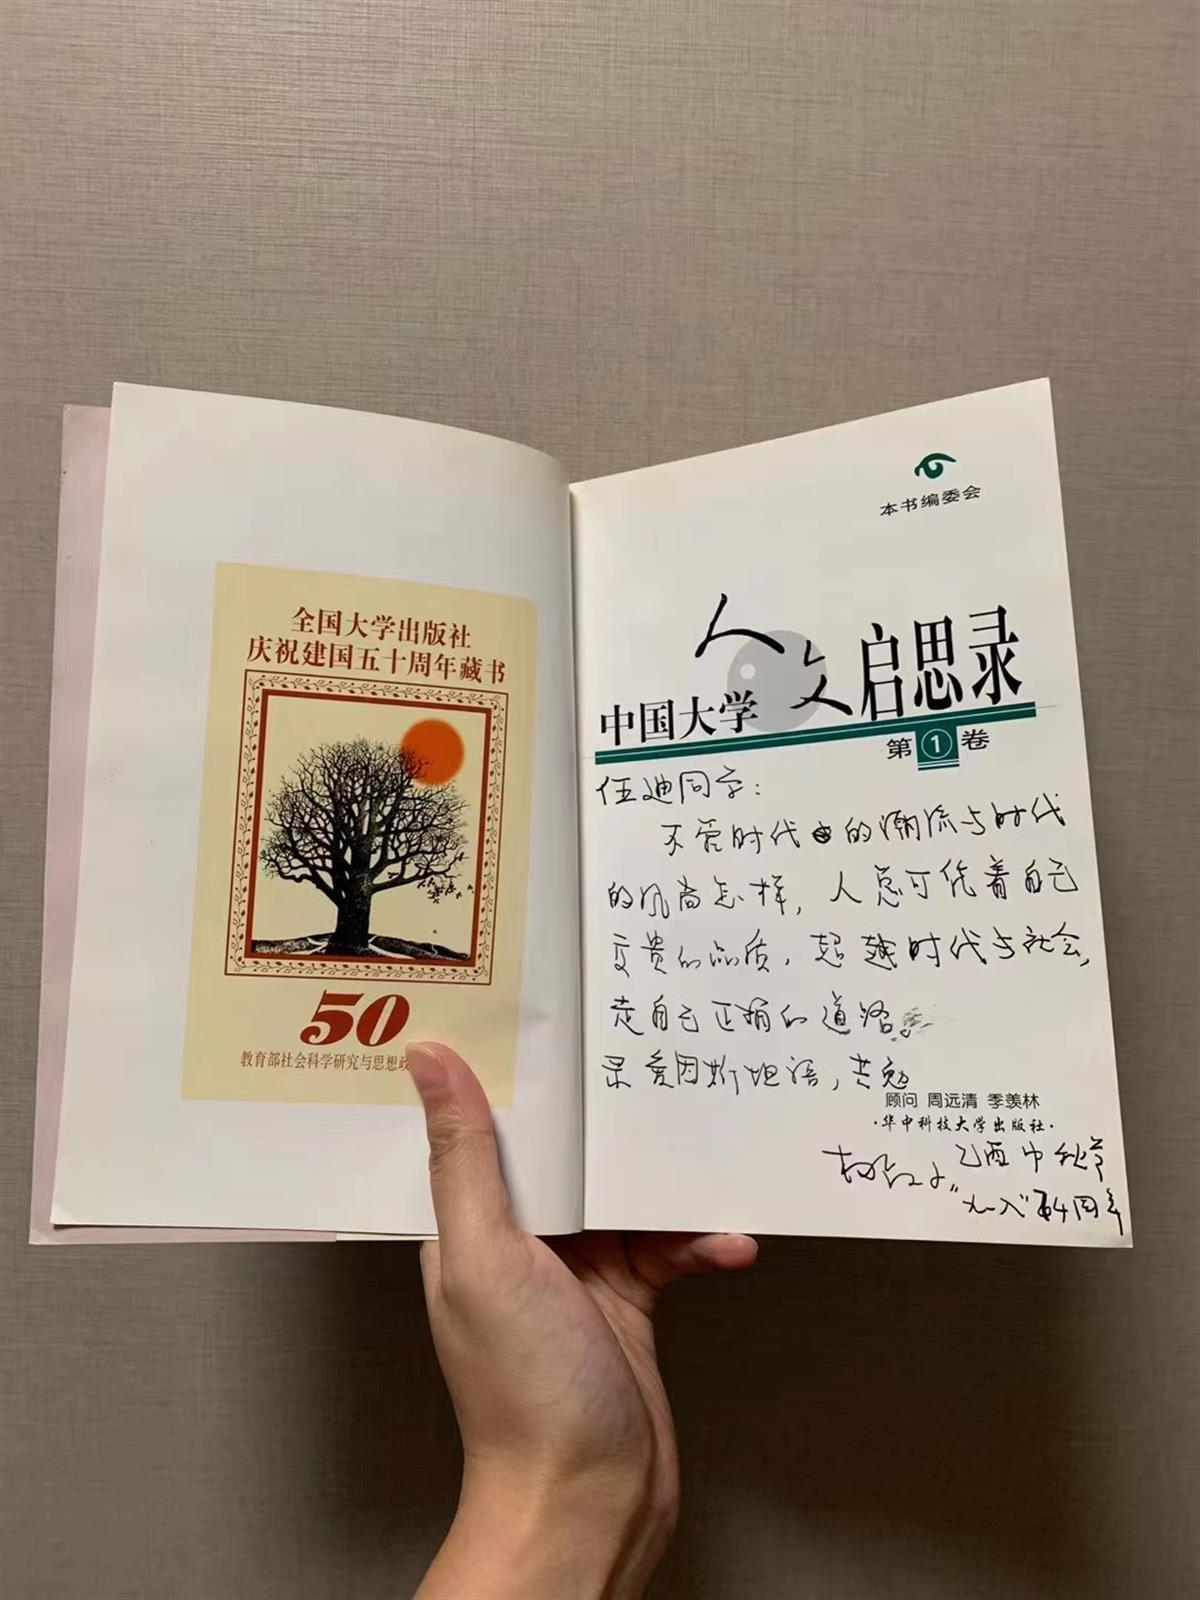 全国大学出版社
庆祝建国五十周年藏书
50
教育部社会科学研究与思想政
本书编委会
中国大学人文启思录
第1卷
伍迪同学:
不管时代的潮流与时代
的风尚怎样,人总可凭着自己
高贵的品质,超越时代与社会,
走自己正确的道路。
录爱因斯坦语,共勉
顾问 周远清 季羡林
·华中科技大学出版社·
乙酉中秋节